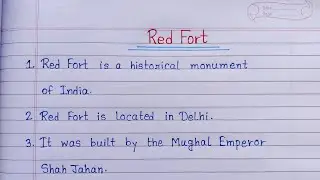 Red Fort
1. Red Fort is a historical monument
of India.
2. Red Fort is located in Delhi.
3. It was built by the Mughal Emperor
Shah Jahan.